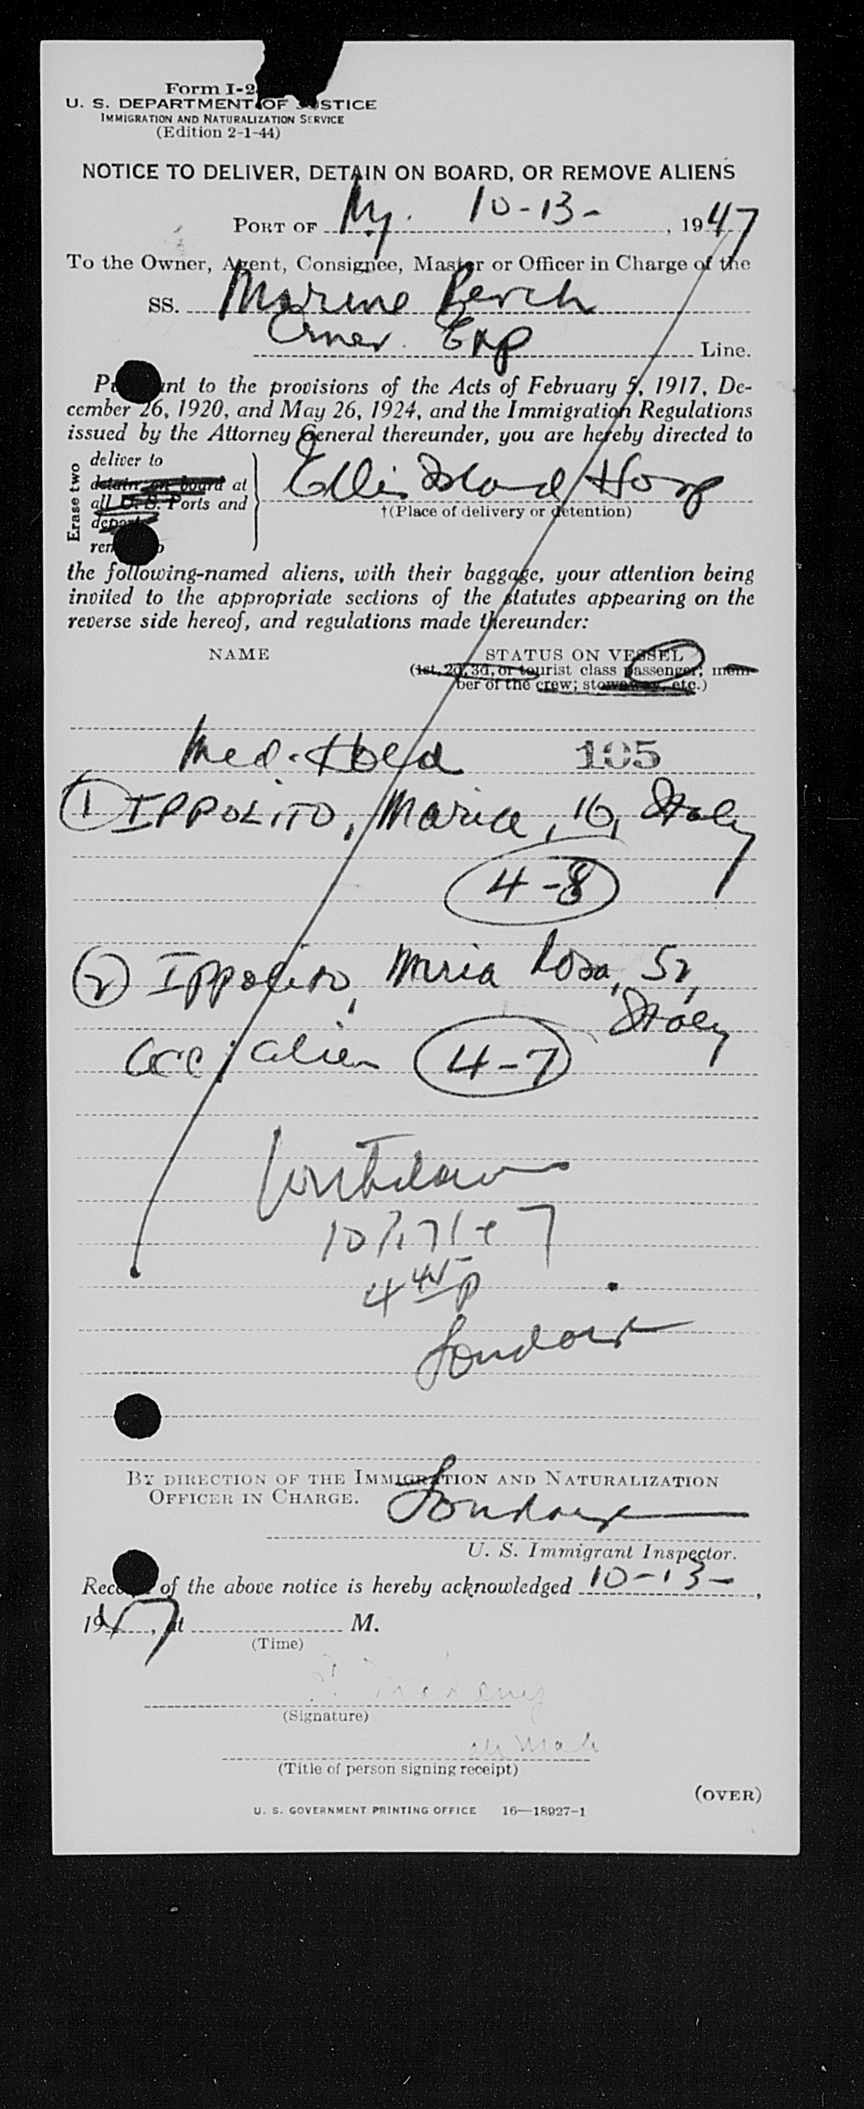 Form I-2
U. S. DEPARTMENT OF JUSTICE
IMMIGRATION AND NATURALIZATION SERVICE
(Edition 2-1-44)
NOTICE TO DELIVER, DETAIN ON BOARD, OR REMOVE ALIENS
PORT OF Ny. 10-13-, 1947
To the Owner, Agent, Consignee, Master or Officer in Charge of the
SS. Marine Perch
Amer. Exp Line.
Pursuant to the provisions of the Acts of February 5, 1917, De-
cember 26, 1920, and May 26, 1924, and the Immigration Regulations
issued by the Attorney General thereunder, you are hereby directed to
Erase two
deliver to
detain on board at
all U. S. Ports and
deport
remove to
Ellis Island Hosp
†(Place of delivery or detention)
the following-named aliens, with their baggage, your attention being
invited to the appropriate sections of the statutes appearing on the
reverse side hereof, and regulations made thereunder:
NAME STATUS ON VESSEL
(1st, 2d, 3d, or tourist class passenger; mem-
ber of the crew; stowaway, etc.)
Med. Hold 105
1 IPPOLITO, Maria, 16, Italy
4-8
2 Ippolito, Maria Rosa, 52,
Italy
acc/alien 4-7
10/17/47
4 45 p
BY DIRECTION OF THE IMMIGRATION AND NATURALIZATION
OFFICER IN CHARGE.
U. S. Immigrant Inspector.
Receipt of the above notice is hereby acknowledged 10-13-,
1947, at M.
(Time)
(Signature)
(Title of person signing receipt)
(OVER)
U. S. GOVERNMENT PRINTING OFFICE 16—18927-1